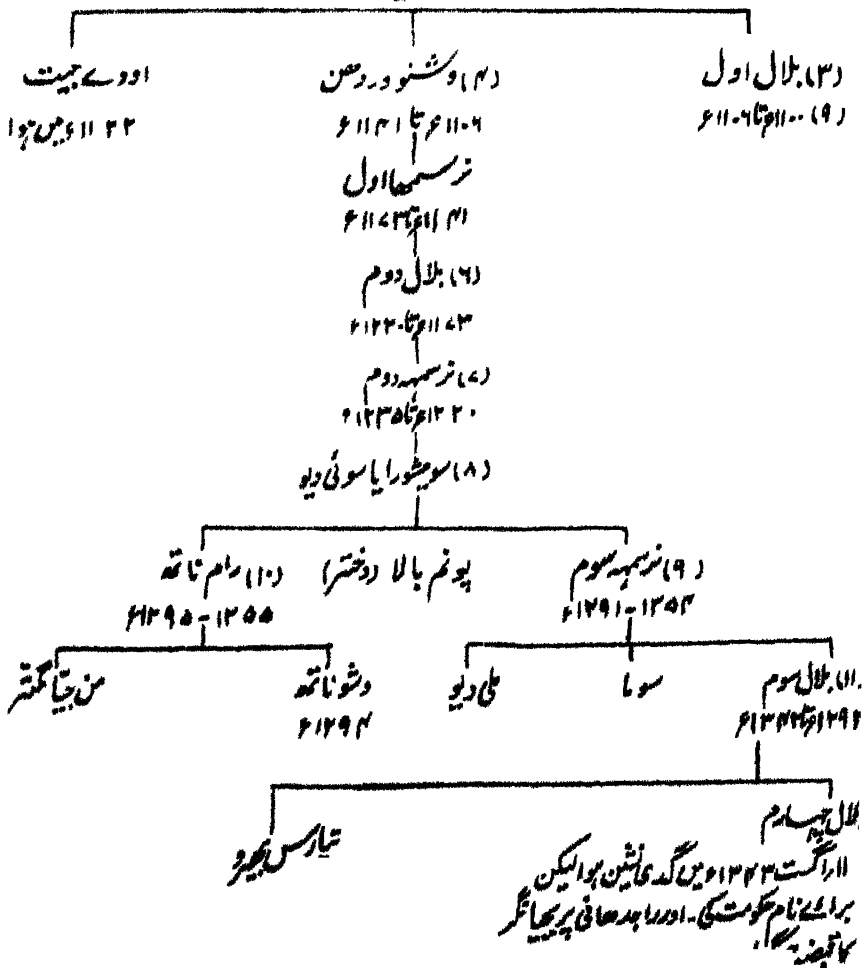 (۳) بلال اول
(۹) ۱۱۰۰ء تا ۱۱۰۶ء
(۴) وشنو وردھن
۱۱۰۶ء تا ۱۱۴۱ء
اودے جیت
۱۱۲۲ء میں ہوا
نرسمھا اول
۱۱۴۱ء تا ۱۱۷۳ء
(۶) بلال دوم
۱۱۷۳ء تا ۱۲۲۰ء
(۷) نرسمہہ دوم
۱۲۲۰ء تا ۱۲۳۵ء
(۸) سومیشورا یا سوئی دیو
(۹) نرسمہہ سوم
۱۲۵۴-۱۲۹۱ء
پونم بالا (دختر)
(۱۰) رام ناتھ
۱۲۵۵-۱۲۹۵ء
(۱۱) بلال سوم
۱۲۹۲ء تا ۱۳۴۲ء
سوما
ملی دیو
وشوناتھ
۱۲۹۴ء
بلال چہارم
۱۱؍اگست ۱۳۴۳ء میں گدی نشین ہوا لیکن
برائے نام حکومت کی۔ اور راجدھانی پر بجیانگر
کا قبضہ